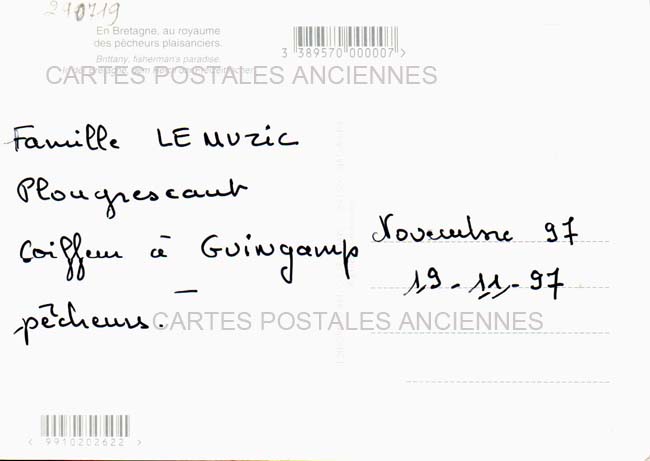 210719
En Bretagne, au royaume
des pêcheurs plaisanciers.
Brittany, fisherman's paradise.
3 389570 000007 >
CARTES POSTALES ANCIENNES
Famille LE MUZIC
Plougrescant
Coiffeur à GUINgamp
pêcheurs.
Novembre 97
19-11-97
CARTES POSTALES ANCIENNES
< 9910202622 >